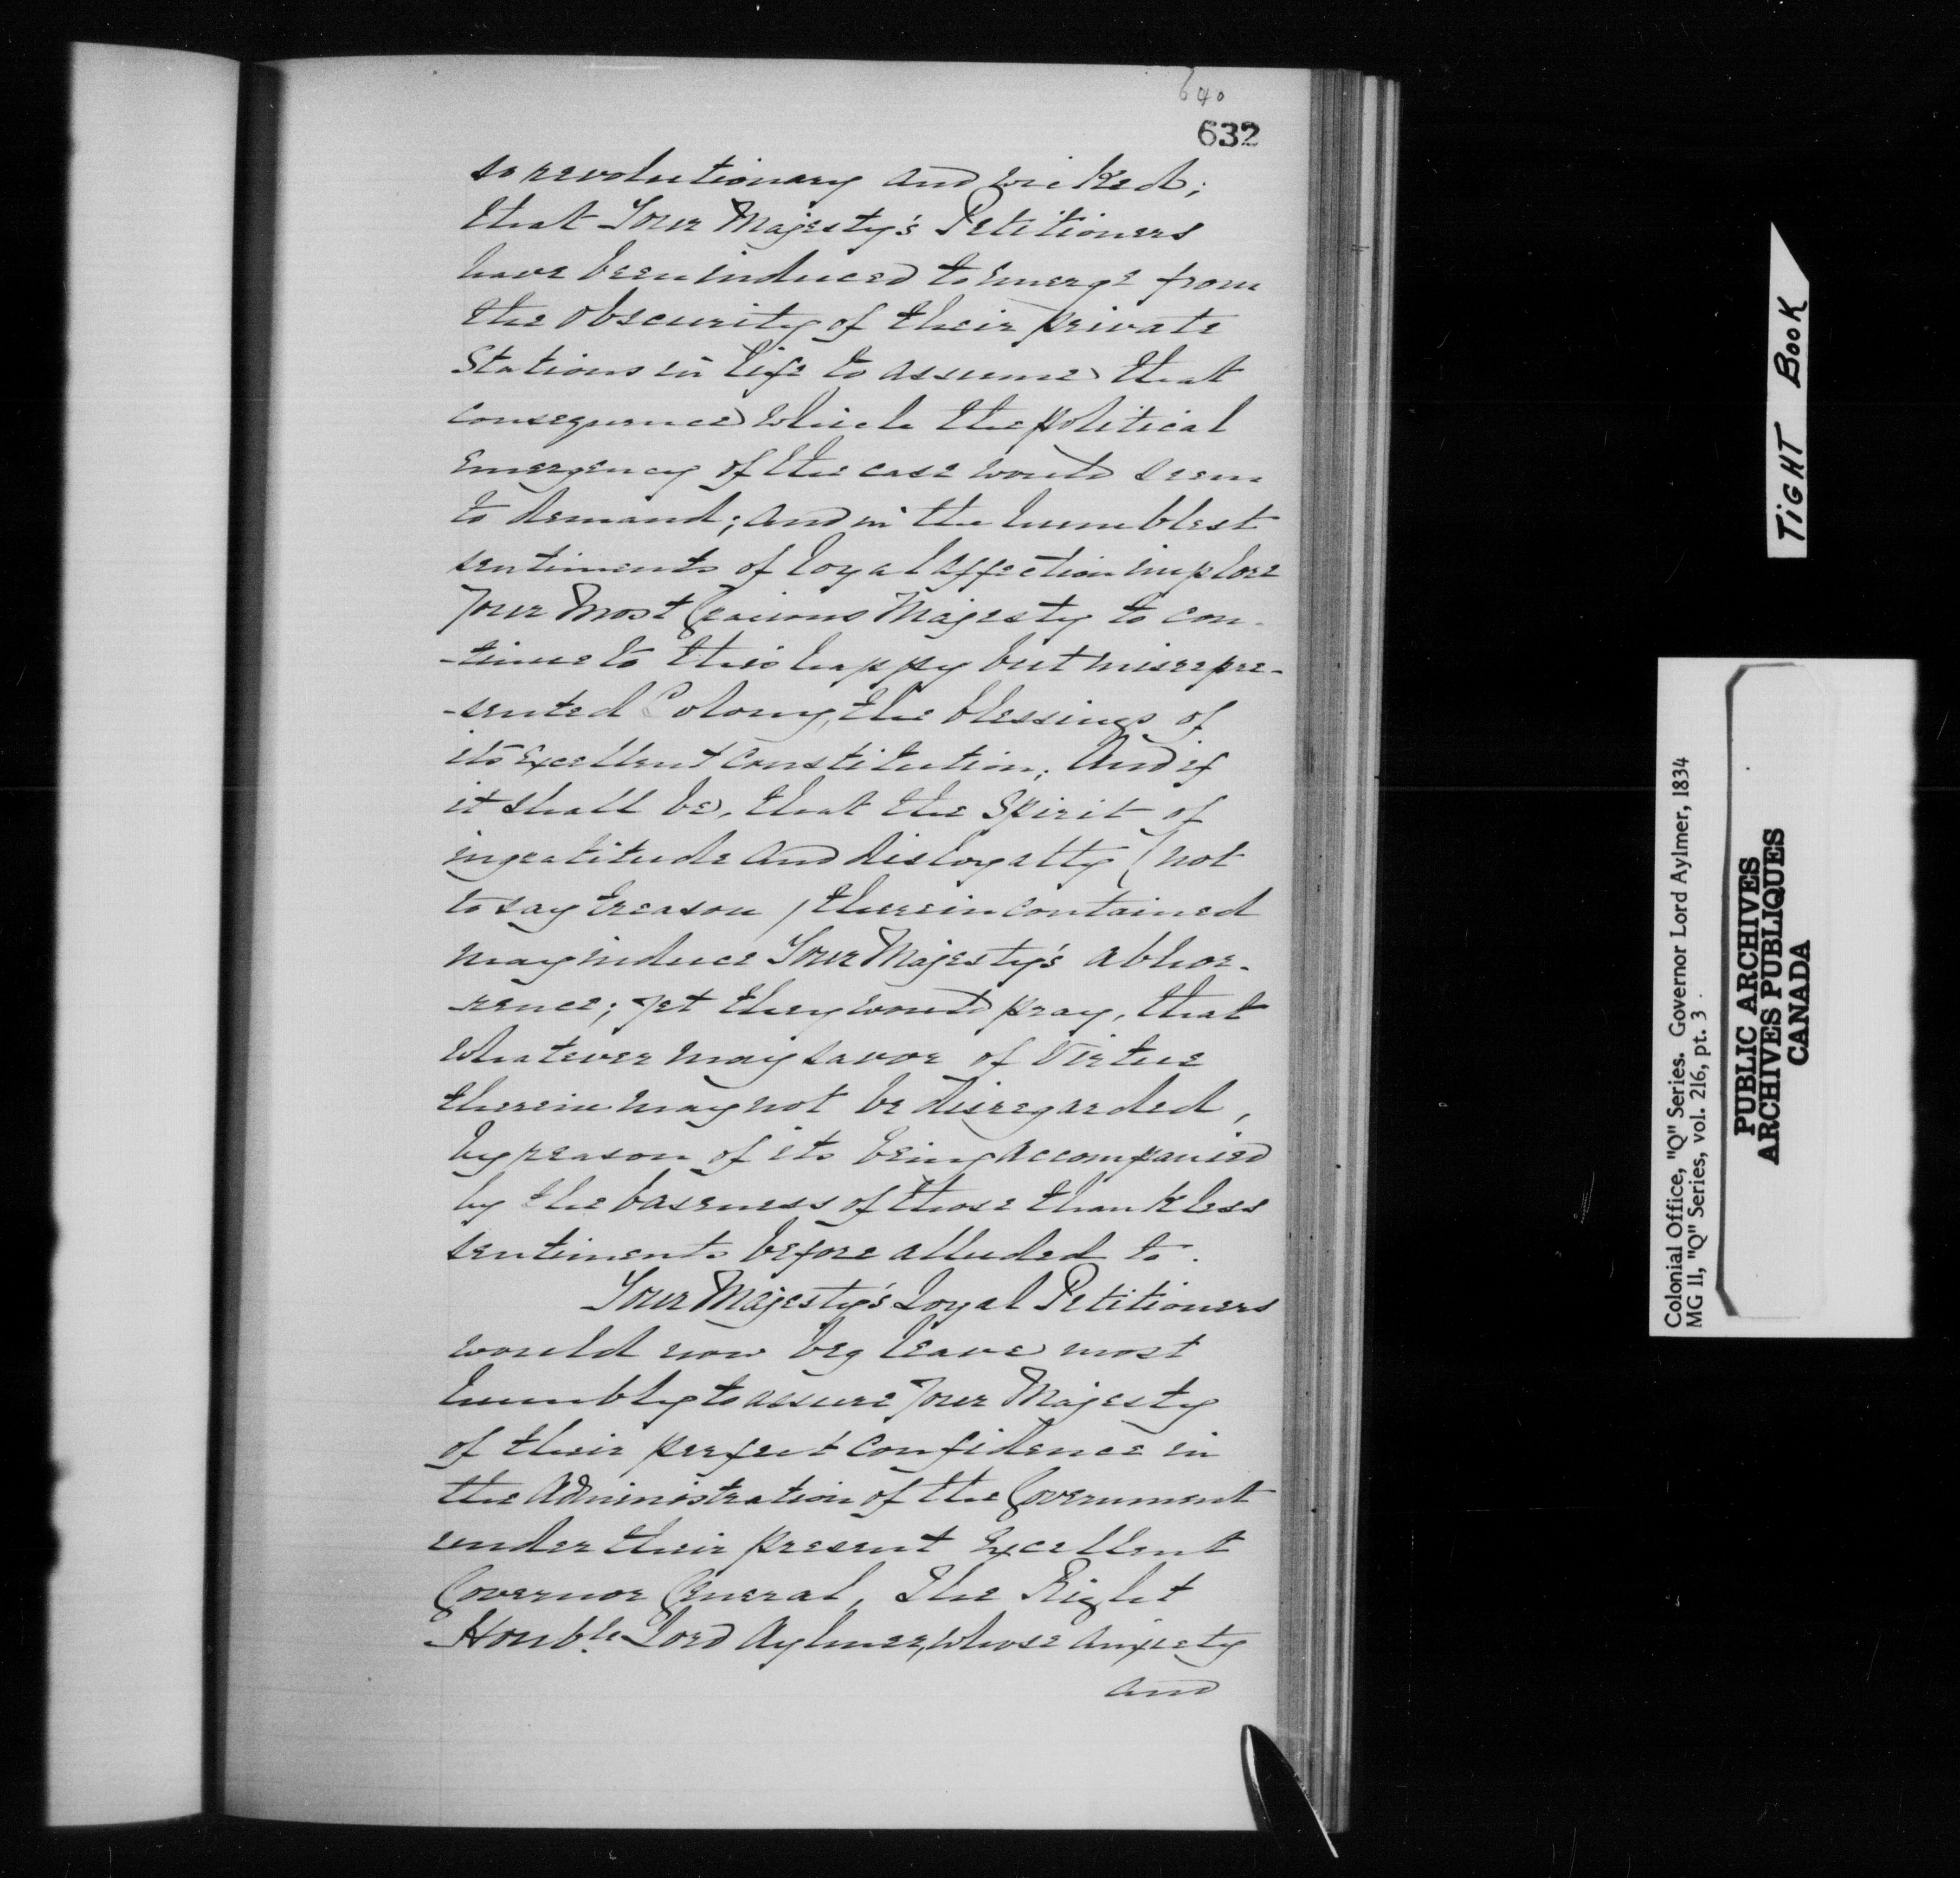 640
632
so revolutionary and wicked;
that Your Majesty's Petitioners
have been induced to emerge from
the obscurity of their private
Stations in life to assume that
consequence which the political
emergency of the case would seem
to demand; and in the humblest
sentiments of loyal affection implore
Your Most Gracious Majesty to con-
-tinue to this happy but misrepre-
-sented Colony, the blessings of
its Excellent Constitution. And if
it shall be, that the Spirit of
ingratitude and disloyalty (not
to say treason) therein contained
may induce Your Majesty's abhor-
-rence; yet they would pray, that
whatever may savor of Virtue
therein may not be disregarded,
by reason of its being accompanied
by the baseness of those thankless
sentiments before alluded to.
Your Majesty's Loyal Petitioners
would now beg leave most
humbly to assure Your Majesty
of their perfect confidence in
the Administration of the Government
under their present Excellent
Governor General, The Right
Honble. Lord Aylmer, whose anxiety
and
TIGHT BOOK
Colonial Office, "Q" Series. Governor Lord Aylmer, 1834
MG 11, "Q" Series, vol. 216, pt. 3.
PUBLIC ARCHIVES
ARCHIVES PUBLIQUES
CANADA